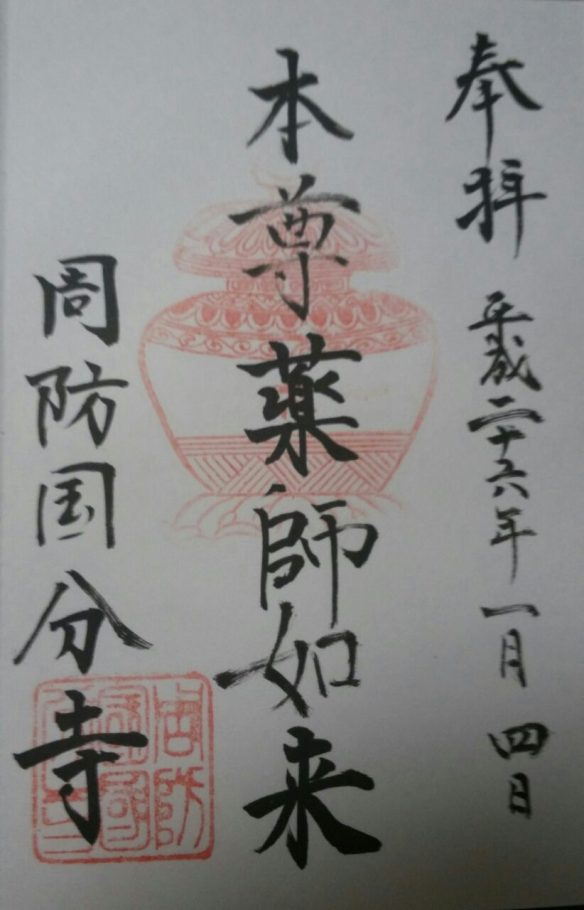 奉拝 平成二十六年一月四日
本尊薬師如来
周防国分寺